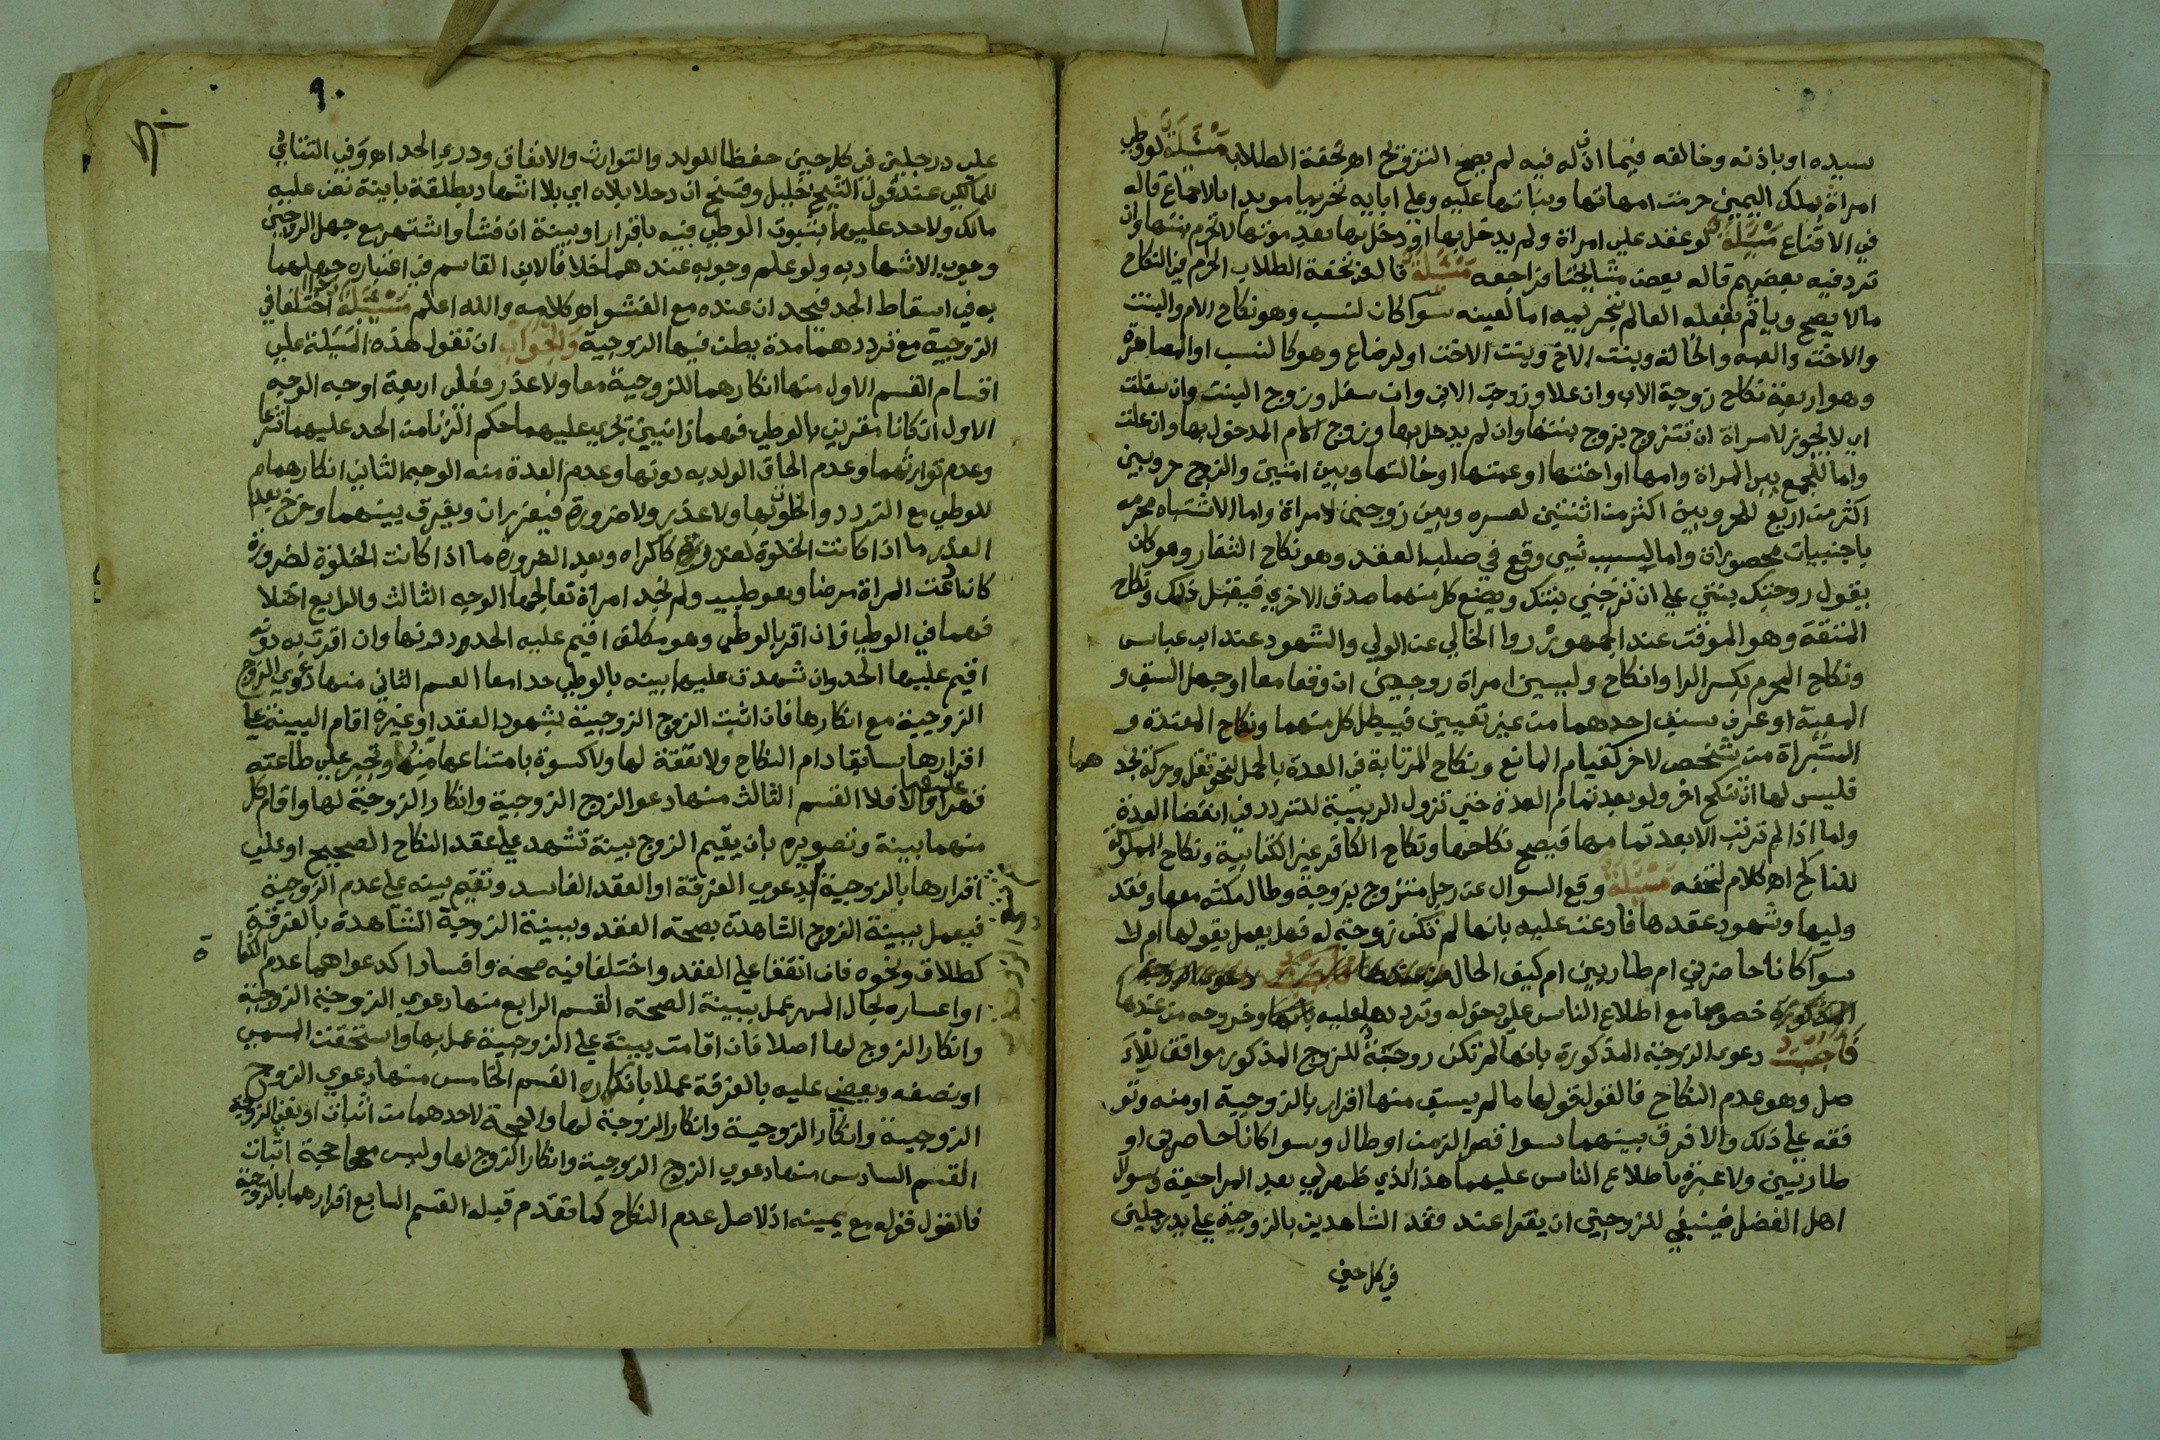 سيده او باذنه وخالفه فيما اذن له فيه لم يصح التزويج اهـ تحفة الطلاب مسئلة لو وطي
امراة بملك اليمين حرمت امهاتها وبناتها عليه وعلى ابايه تحريما موبدا بالاجماع قاله
في الاقناع مسئلة لو عقد علي امراة ولم يدخل بها او دخل بها بعد موتها لا تحرم بنتها وان
تردد فيه بعضهم قاله بعض مشايخنا فراجعه مسئلة قال في تحفة الطلاب الحرام من النكاح
مالا يصح وياثم بفعله العالم بتحريمه اما لعينه سوا كان لنسب وهو نكاح الام والبنت
والاخت والعمه والخالة وبنت الاخ وبنت الاخت او لرضاع وهو كالنسب او المصاهرة
وهو اربعة نكاح زوجة الاب وان علا وزوجة الابن وان سفل وزوج البنت وان سفلت
اي لا يجوز لامراة ان تتزوج بزوج بنتها وان لم يدخل بها وزوج الام المدخول بها وان علت
واما للجمع بين المراة وامها او اختها او عمتها او خالتها وبين امتين والزوج حر وبين
اكثر من اربع للحر وبين اكثر من اثنتين لغيره وبين زوجين لامراة واما الاشتباه محرمه
باجنبيات محصوراة واما لسبب شيي وقع في صلب العقد وهو نكاح الشغار وهو كان
يقول زوجتك بنتي علي ان تزوجني بنتك وبضع كل منهما صدق الاخري فيقبل ذلك ونكاح
المتعة وهو الموقت عند الجمهور وا الخالي عن الولي والشهود عند ابن عباس
ونكاح المحرم بكسر الرا وانكاح وليين امراة زوجين ان وقعا معا او جهل السبق و
المعية او عرف سبق احدهما من غير تعيين فيبطل كل منهما ونكاح المعتدة و
المستبراة من شخص لاخر لقيام المانع ونكاح المرتابة في العدة بالحمل لنحو ثقل وحركة تجد هما
فليس لها ان تنكح اخر ولو بعد تمام العدة حتي تزول الريبة للتردد في انقضا العدة
واما اذا لم ترتب الا بعد تمامها فيصح نكاحها ونكاح الكافر غير الكتابية ونكاح المملوكة
للناكح اهـ كلام التحفه مسئلة وقع السوال عن رجل متزوج بزوجة وطال مكثه معها وفقد
وليها وشهود عقدها فادعت عليه بانها لم تكن زوجة له فهل يعمل بقولها ام لا
سوا كانا حاضرين ام طاريين ام كيف الحال
خصوصا مع اطلاع الناس علي دخوله وتردده عليه وخروجه من عندها
فاجبت دعوى الزوجة المذكورة بانها لم تكن زوجة للزوج المذكور موافق للا
صل وهو عدم النكاح فالقول قولها ما لم يسبق منها اقرار بالزوجية او منه وتو
فقه علي ذلك والا فرق بينهما سوا قصر الزمن او طال وسوا كانا حاضرين او
طاريين ولا عبرة باطلاع الناس عليهما هذا الذي ظهر لي بعد المراجعة وسوال
اهل الفضل فينبغي للزوجين ان يقرا عند فقد الشاهدين بالزوجية علي يد رجلين
في كل حين
٩٠
علي يد رجلين في كل حين حفظا للولد والتوارث والانفاق ودرء الحد اهـ وفي التتائي
للمالكي عند قول الشيخ خليل وفسخ ان دخلا بلاه اي بلا اشهاد بطلقة باينة نص عليه
مالك ولا حد عليهما بثبوت الوطي فيه باقرار او بينة ان فشا واشتهر مع جهل الزوجين
وجوب الاشهاد به ولو علم وجوبه عندهما خلافا لابن القاسم في اعتباره جهلهما
به في اسقاط الحد فيحدان عنده مع الفشو اهـ كلامه والله اعلم مسئلة اختلفا في
الزوجية مع ترددهما مدة يظن فيها الزوجية والجواب ان تقول هذه المسئلة علي
اقسام القسم الاول منها انكارهما للزوجية معا ولا عذر فعلى اربعة اوجه الوجه
الاول ان كانا مقرين بالوطي فهما زانيين يجري عليهما حكم الزنا من الحد عليهما شرعا
وعدم توارثهما وعدم الحاق الولد به دونها وعدم العدة منه الوجه الثاني انكارهما
للوطي مع التردد والخلوة بها ولا عذر ولا ضرورة فيعزران ويفرق بينهما وخرج بعدم
العذر ما اذا كانت الخلوة لعذر كاكراه وبعد الضرورة ما اذا كانت الخلوة لضرورة
كانت المراة مرضا وهو طبيب ولم تجد امراة تعالجها الوجه الثالث والرابع اختلا
فهما في الوطي فان اقر بالوطي وهو مكلف اقيم عليه الحد دونها وان اقرت به دونه
اقيم عليها الحد وان شهدت عليهما بينه بالوطي حدا معا القسم الثاني منها دعوي الزوج
الزوجية مع انكارها فان اثبت الزوج الزوجية بشهود العقد او غيره اقام البينة علي
اقرارها سابقا دام النكاح ولا نفقة لها ولا كسوة بامتناعها منها وتجبر علي طاعته
قهرا عليها والا فلا القسم الثالث منها دعوا الزوج الزوجية وانكار الزوجة لها واقام كل
منهما بينة وتصويره بان يقيم الزوج بينة تشهد علي عقد النكاح الصحيح او علي
اقرارها بالزوجية يدعوي الفرقة او العقد الفاسد وتقيم بينه علي عدم الزوجية
فيعمل ببينة الزوج الشاهدة بصحة العقد وببينة الزوجة الشاهدة بالفرقة
كطلاق ونحوه فان اتفقا علي العقد واختلفا فيه صحة وافسادا كدعواهما عدم
او اعساره بحال المهر عمل ببينة الصحة القسم الرابع منها دعوي الزوجة الزوجية
وانكار الزوج لها اصلا فان اقامت بينة علي الزوجية عمل بها واستحقت المسمي
او نصفه ويقضي عليه بالفرقة عملا بانكاره القسم الخامس منها دعوي الزوج
الزوجية وانكار الزوجية وانكار الزوجة لها ولا حجة لاحدهما من اثبات او نفي الزوجية
القسم السادس منها دعوي الزوج الزوجية وانكار الزوج لها وليس معها حجة اثبات
فالقول قوله مع يمينه اذ لاصل عدم النكاح كما تقدم قبله القسم السابع اقرارهما بالزوجية